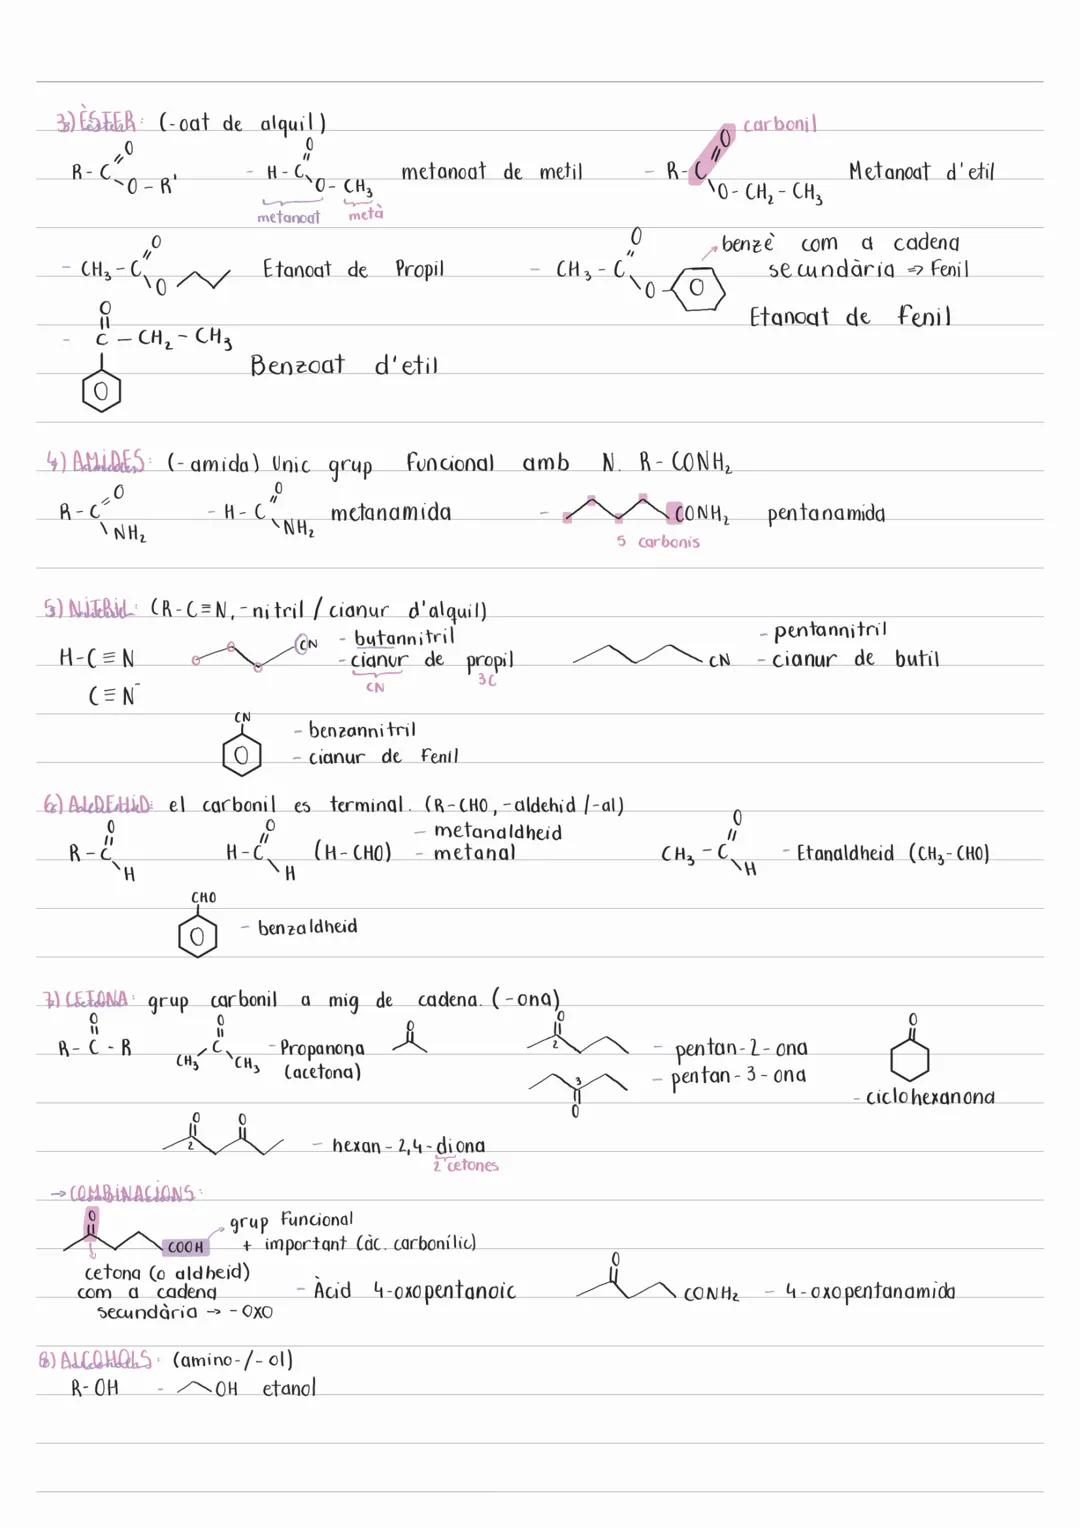 3) ÈSTER: (-oat de alquil)
carbonil
R - C =O O - R'
- H - C =O O - CH₃ metanoat de metil
- R - C =O O - CH₂ - CH₃ Metanoat d'etil
metanoat metà
- CH₃ - C =O O Etanoat de Propil
- CH₃ - C =O O benzè com a cadena
secundària => Fenil
Etanoat de fenil
- O C - CH₂ - CH₃
Benzoat d'etil
4) AMIDES: (-amida) Unic grup funcional amb N. R - CONH₂
R - C =O NH₂
- H - C =O NH₂ metanamida
- CONH₂ pentanamida
5 carbonis
5) NITRIL: (R-C≡N, -nitril / cianur d'alquil)
H-C≡N
CN - butannitril
- cianur de propil
CN 3C
CN - pentannitril
- cianur de butil
C≡N⁻
CN - benzannitril
- cianur de Fenil
6) ALDEHID: el carbonil es terminal. (R-CHO, -aldehid /-al)
R - C =O H
H - C =O H (H-CHO) - metanaldheid
- metanal
CH₃ - C =O H - Etanaldheid (CH₃-CHO)
CHO
- benzaldheid
7) CETONA: grup carbonil a mig de cadena. (-ona)
O R - C - R
O CH₃ C CH₃ - Propanona
(acetona)
O
O 2 - pentan-2-ona
3 O - pentan-3-ona
O - ciclohexanona
O O 2 - hexan-2,4-diona
2 cetones
→ COMBINACIONS:
O COOH grup Funcional
+ important (àc. carbonílic)
cetona (o aldheid)
com a cadena
secundària → -OXO
- Àcid 4-oxopentanoic
O CONH₂ - 4-oxopentanamida
8) ALCOHOLS: (amino-/-ol)
R-OH - OH etanol